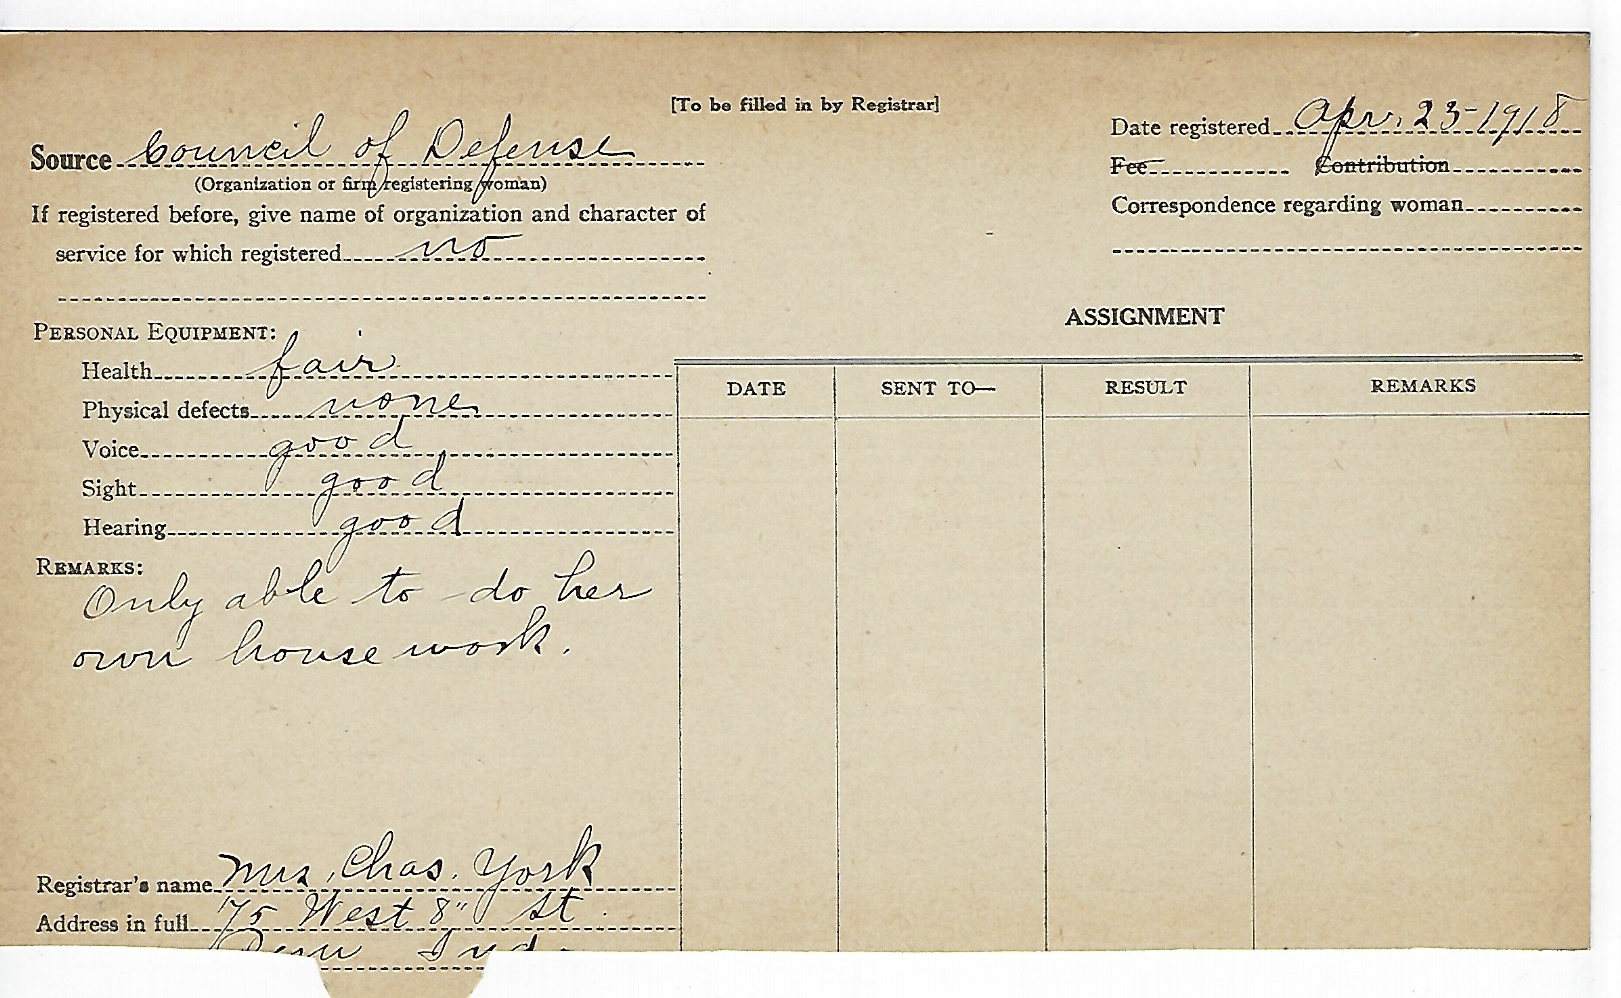 [To be filled in by Registrar]
Source Council of Defense
(Organization or firm registering woman)
If registered before, give name of organization and character of
service for which registered no
Date registered Apr. 23-1918
Fee Contribution
Correspondence regarding woman
PERSONAL EQUIPMENT:
Health fair
Physical defects none
Voice good
Sight good
Hearing good
REMARKS:
Only able to do her
own house work.
Registrar's name Mrs. Chas. York
Address in full 75 West 8" St.
Peru Ind.
ASSIGNMENT
DATE SENT TO— RESULT REMARKS